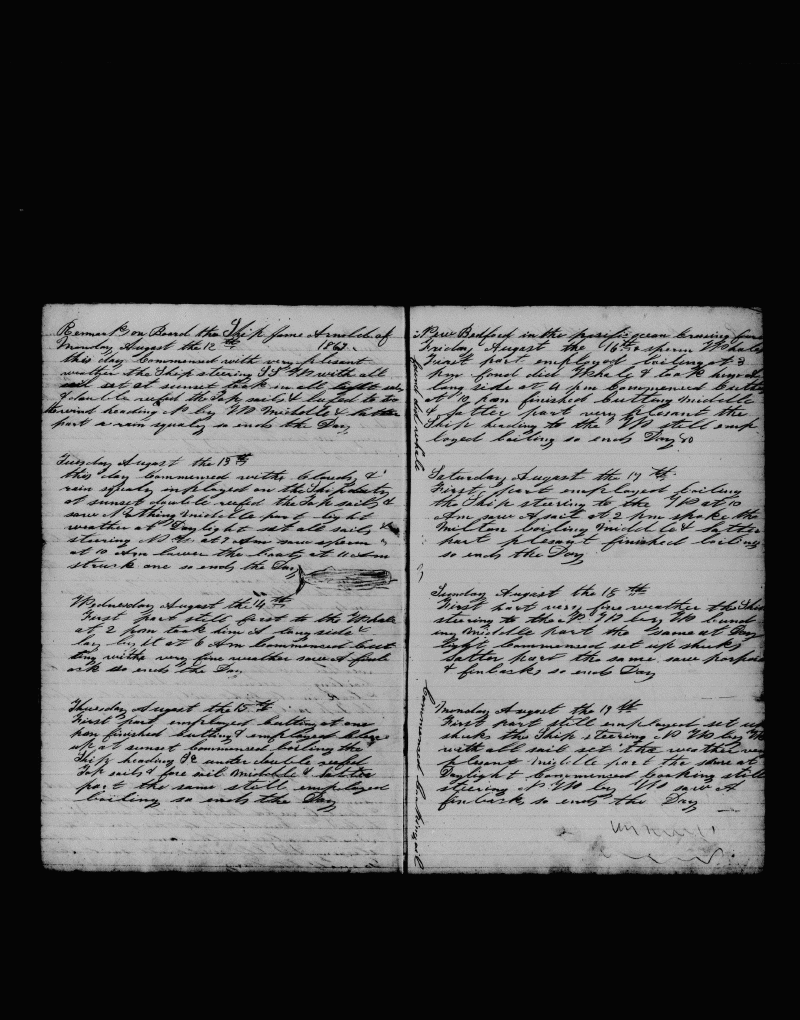 Remarks on Board the Ship James Arnold of
Monday August the 12th 1867
this day Commenced with very plesent
weather the Ship steering SSW with all
sail set at sunset took in all light sails
& double reefed the Top sails & lufed to the
wind heading N by W Middle & latter
part a rain squaly so ends the Day
Tuesday August the 13th
this day Commenced withe Clouds &
rain squaly imployed on the Ship duty
at sunset double reefed the Top sails &
saw Nothing Middle part light
weather at Daylight set all sails &
steering N W at 7 Am saw sperm
at 10 Am lower the boats at 11 Am
struck one so ends the Day
Wednesday August the 14th
First part still fast to the Whale
at 2 pm took him A long side &
lay by it at 6 Am Commenced cut
ting withe very fine weather saw A finb
ack so ends the Day
Thursday August the 15th
First part employed cutting at one
pm finished cutting & employed
up at sunset Commenced boiling the
Ship heading under double reefed
Top sails & fore sail Middle & latter
part the same still employed
boiling so ends the Day
New Bedford in the pacific ocean Crusing for
Friday August the 16th sperm Whales
First part employed boiling at 3
pm found died Whale & took him A
long side at 4 pm Commenced Cutting
at 10 pm finished cutting Middle
& latter part very plesant the
Ship heading to the W still emp
loyed boiling so ends Day
found died whale
Saturday August the 17th
First part employed boiling
the Ship stering to the W at 10
Am saw A sail at 2 pm spoke the
Milton boiling Middle & latter
part plesant finished boiling
so ends the Day
Sunday August the 18th
First part very fine weather the Ship
steering to the N W by W
ing Middle part the same at Day
light Commenced set up shuks
Latter part the same saw porpois
& finbacks so ends Day
Monday August the 19th
First part still employed set up
shuks the Ship steering N W by W
with all sail set the weather very
plesant middle part the same at
Daylight Commenced still
steering N W by W saw A
finback so ends the Day
Commenced